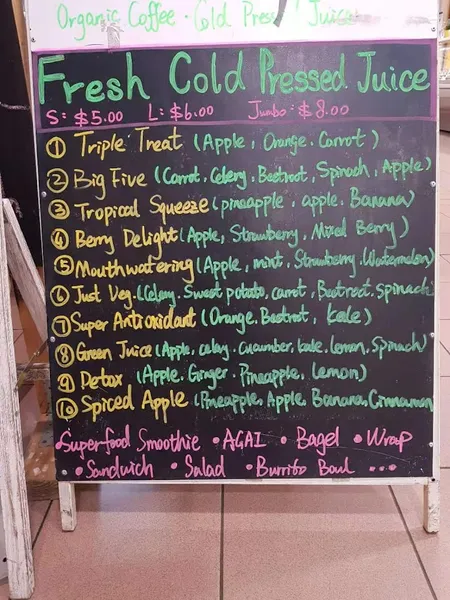 Organic Coffee · Cold Press Juice
Fresh Cold Pressed Juice
S: $5.00 L: $6.00 Jumbo: $8.00
① Triple Treat (Apple, Orange. Carrot)
② Big Five (Carrot, Celery, Beetroot, Spinach, Apple)
③ Tropical Squeeze (pineapple, apple, Banana)
④ Berry Delight (Apple, Strawberry, Mixed Berry)
⑤ Mouthwatering (Apple, mint, Strawberry. Watermelon)
⑥ Just Veg. (Celery, Sweet potato, carrot, Beetroot. Spinach
⑦ Super Antioxidant (Orange. Beetroot, kale)
⑧ Green Juice (Apple, celery. cucumber, kale, lemon, Spinach)
⑨ Detox (Apple. Ginger. Pineapple, lemon)
⑩ Spiced Apple (Pineapple, Apple, Banana, Cinnamon
• Superfood Smoothie • AGAI • Bagel • Wrap
• Sandwich • Salad • Burrito Boul ...